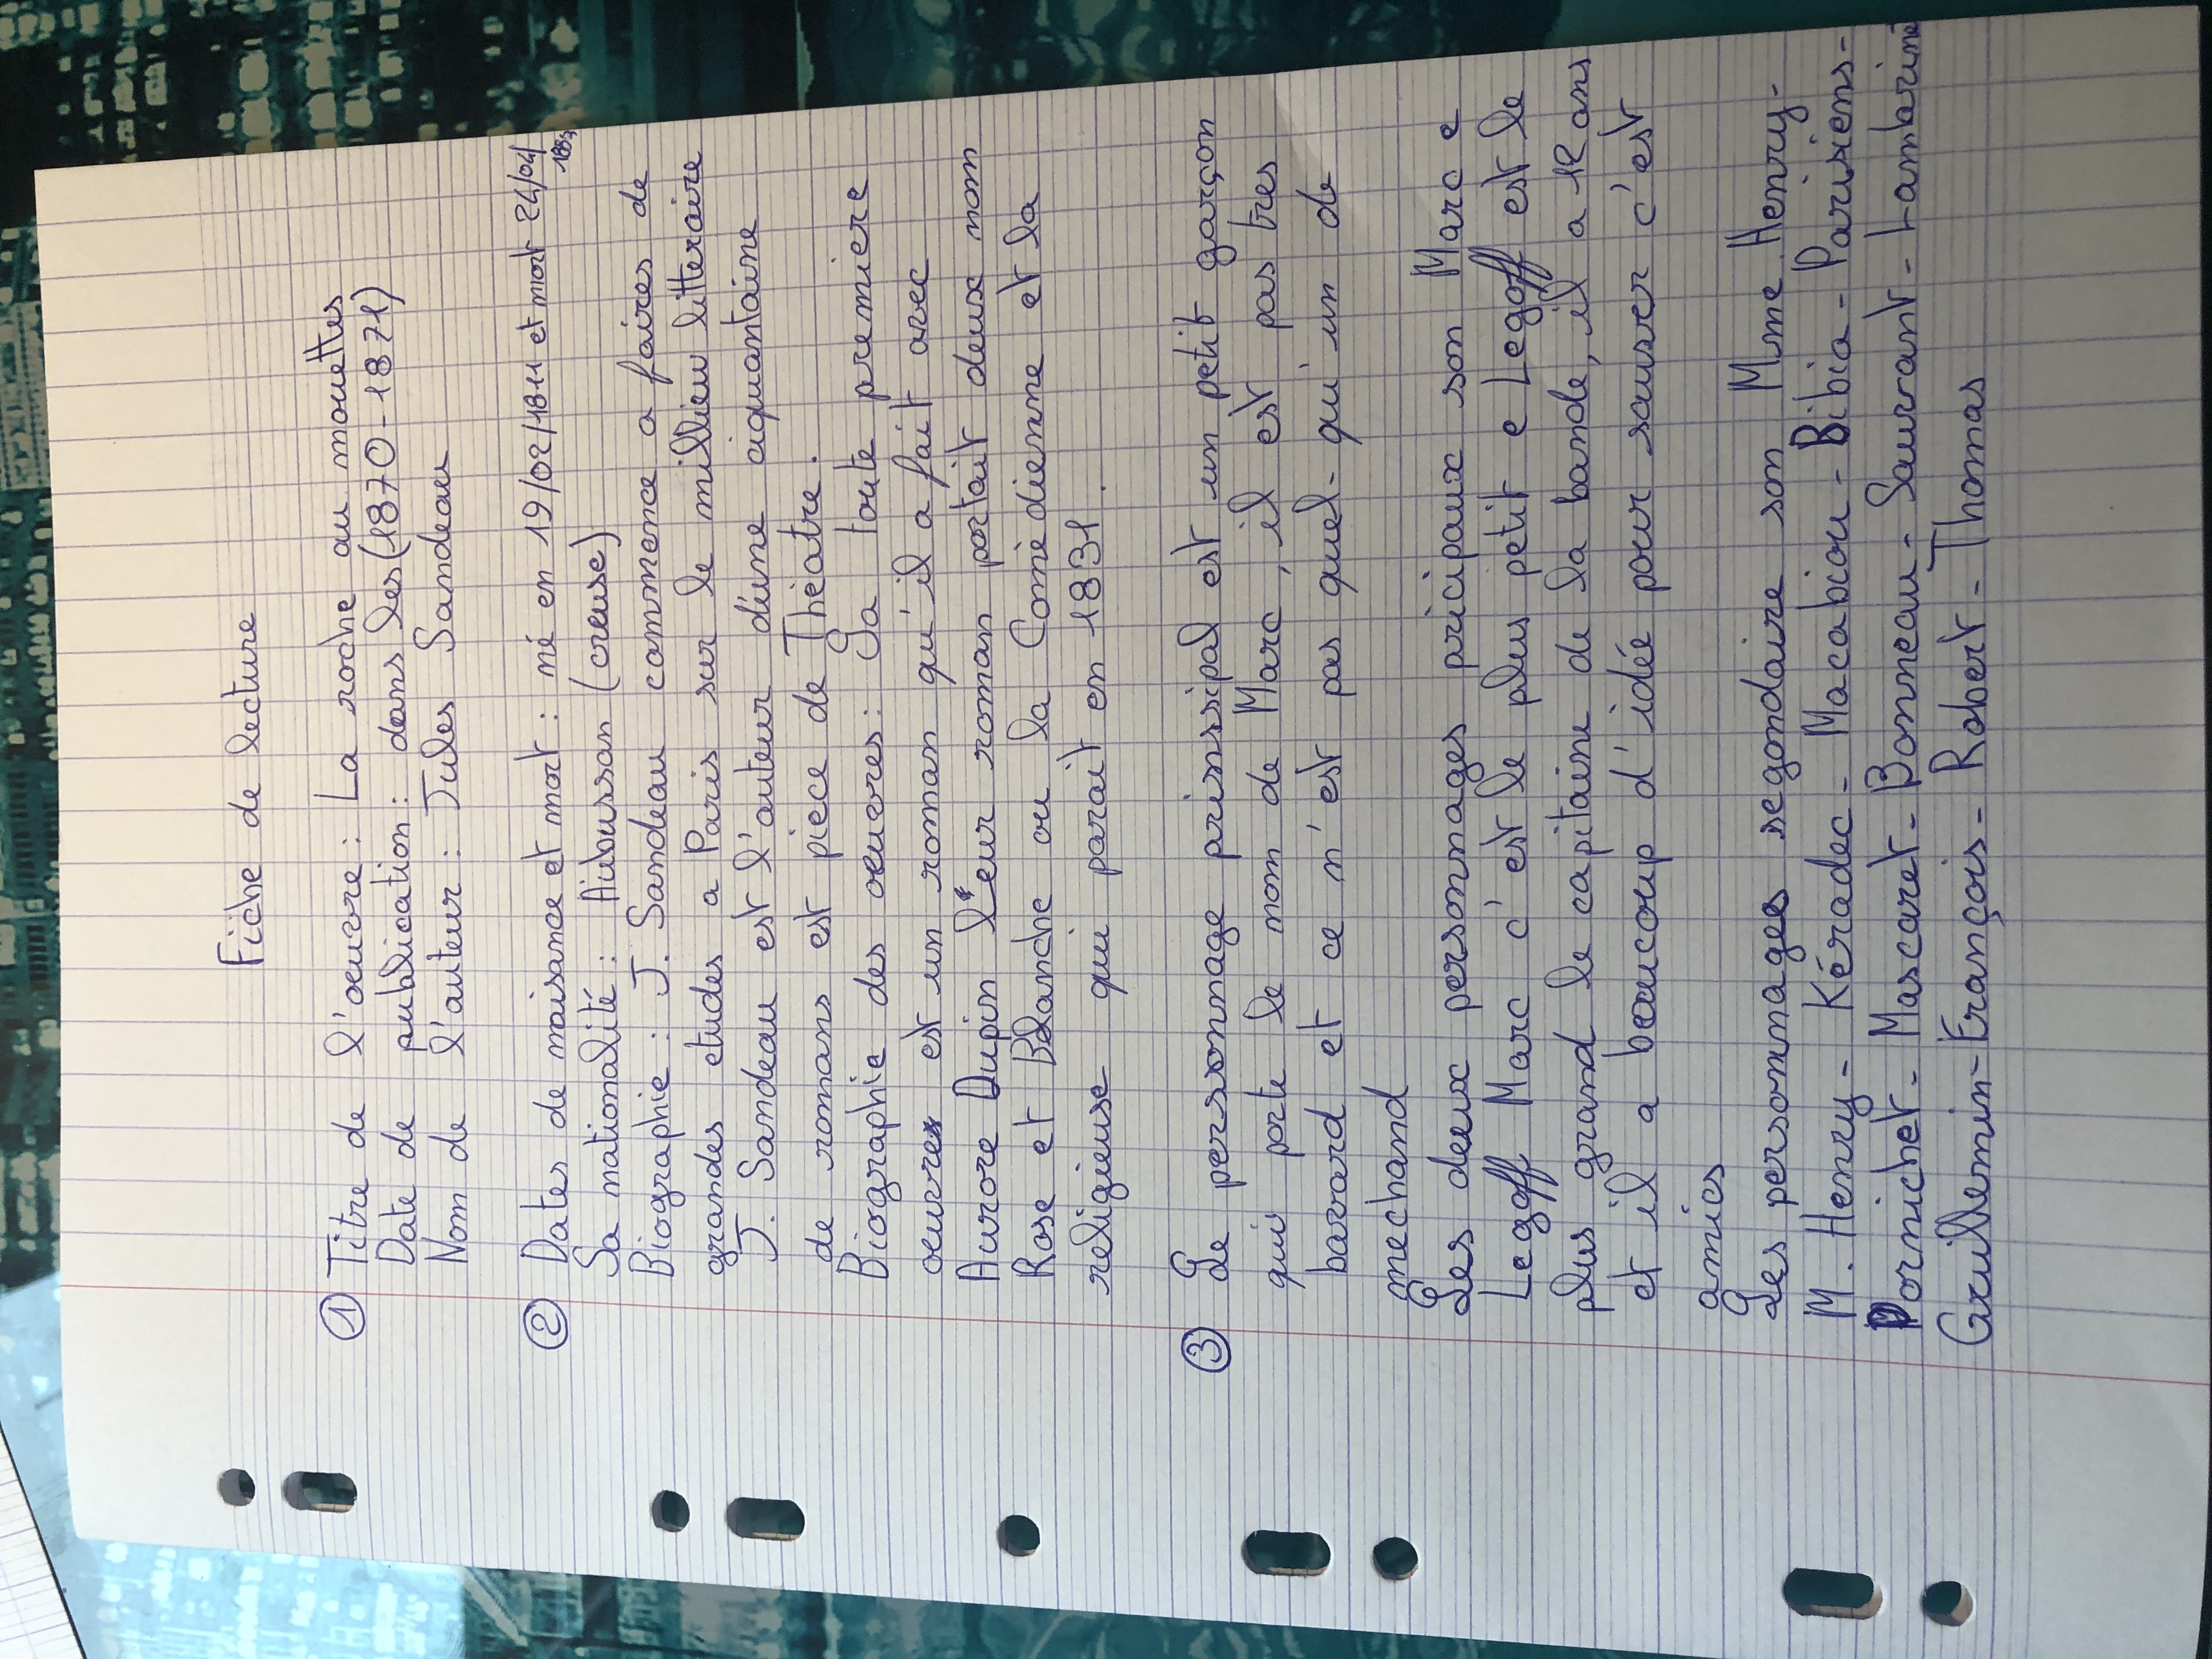 Fiche de lecture
① Titre de l'oeuvre : La roche au mouettes
Date de publication : dans les (1870-1871)
Nom de l'auteur : Jules Sandeau
② Dates de naisance et mort : né en 19/02/1811 et mort 24/04/
1883
Sa nationalité : Aubusson (creuse)
Biographie : J. Sandeau commence a faires de
grandes etudes a Paris sur le millieu litteraire
J. Sandeau est l'auteur d'une ciquantaine
de romans est piece de Théatre.
Biographie des oeuvres : Sa toute premiere
oeuvre est un roman qu'il a fait avec
Aurore Dupin leur roman portait deux nom
Rose et Blanche ou la Comédienne et la
religieuse qui parait en 1831.
③ Le personnage prinssipal est un petit garçon
qui porte le nom de Marc, il est pas tres
bavard et ce n'est pas quel-qui un de
mechand
Les deux personnages pricipaux son Marc e
Legoff Marc c'est le plus petit e Legoff est le
plus grand le capitaine de la bande, il a 12 ans
et il a beaucoup d'idée pour sauver c'est
amies
Les personnages segondaire son Mme Henry-
M. Henry - Kéradec - Macabiou - Bibia - Parisiens-
Pornichet - Mascaret - Bonneau - Saurant - Lambariné
Guillemin - François - Robert - Thomas